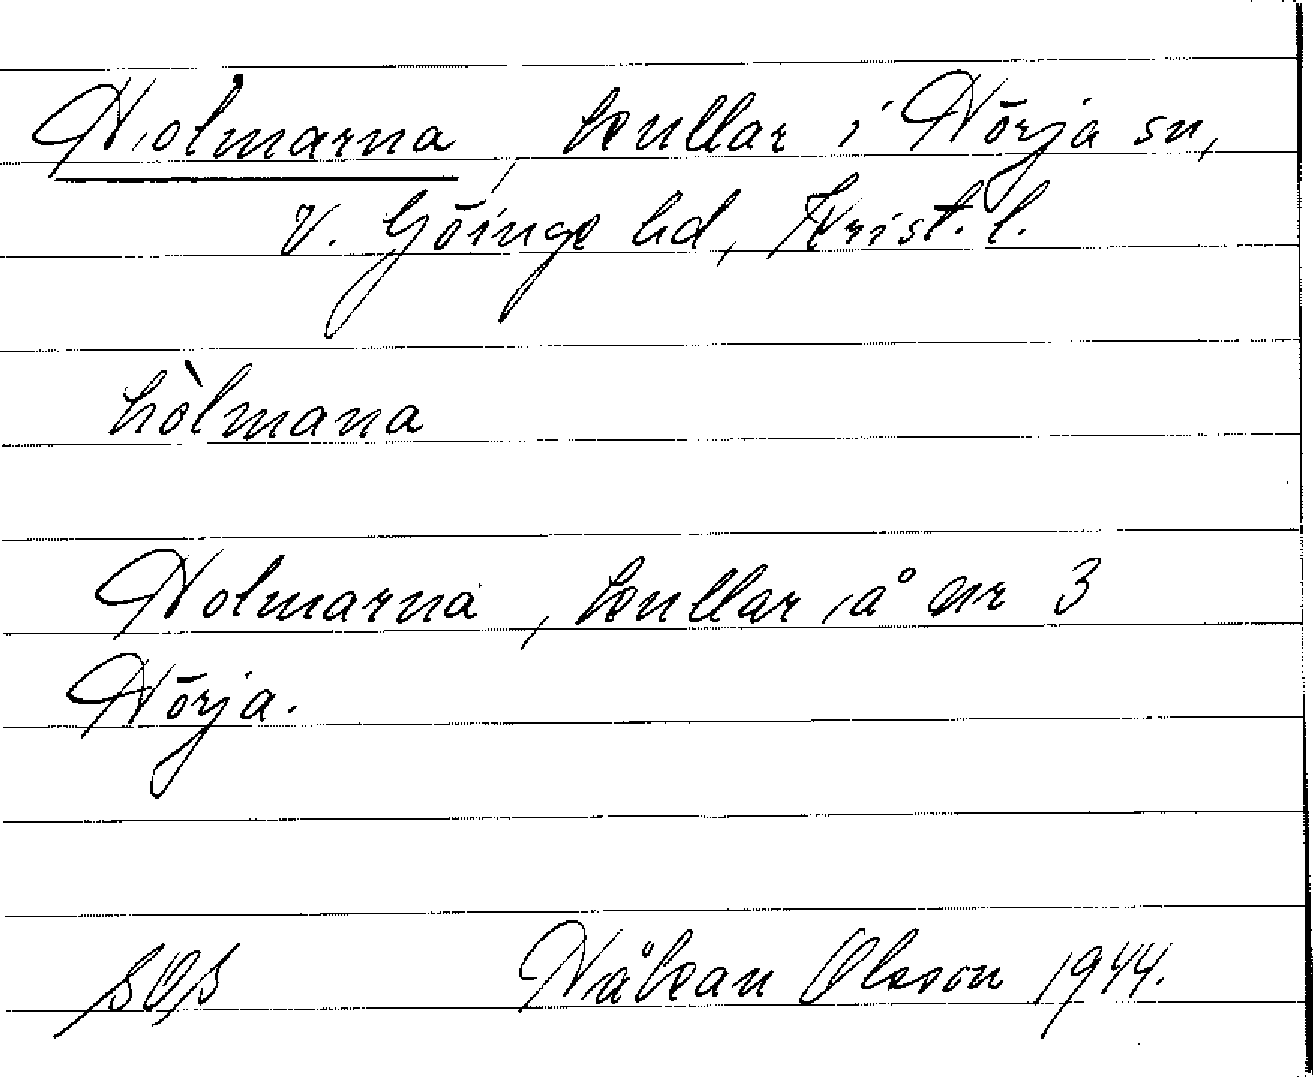 Holmarna, kullar i Hörja sn,
V. Göinge hd, Krist. l.
hòlmana
Holmarna, kullar å nr 3
Hörja.
SOS Håkan Olsson 1944.